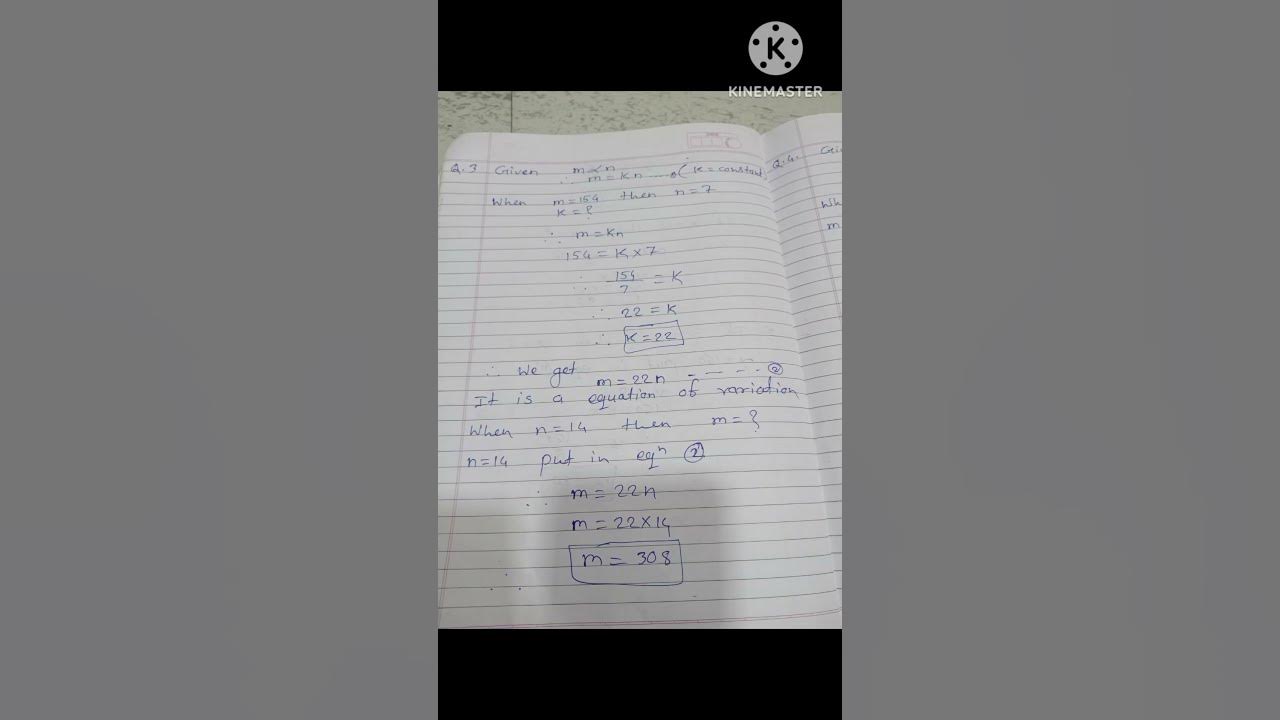 K
KINEMASTER
Q.3 Given m ∝ n
∴ m = Kn ( K = constant
When m = 154 then n = 7
K = ?
∴ m = Kn
154 = K × 7
∴ 154/7 = K
∴ 22 = K
∴ K = 22
∴ We get m = 22n - - - - ②
It is a equation of variation
When n = 14 then m = ?
n = 14 put in eqⁿ ②
∴ m = 22n
m = 22 × 14
∴ m = 308
Q.4. Gi
Wh
m